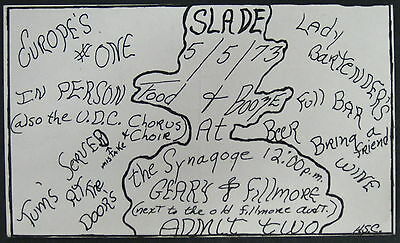 EUROPE'S
#ONE
IN PERSON
(also the U.D.C. Chorus
& Choir
Tum's SERVED
mistake
At The
DOORS
SLADE
5/5/73
Food & BOOZE
At
the Synagoge 12:00p.m.
GEARY & Fillmore
(next to the old fillmore audt.)
ADMIT TWO
Lady
BARTENDER'S
Full BAR
BEER
BRING a friend
WINE